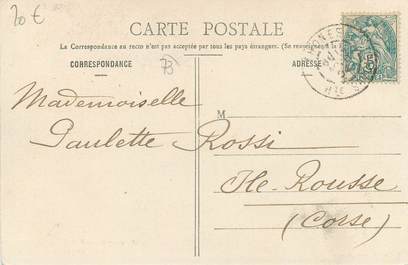 20 €
CARTE POSTALE
La Correspondance au recto n'est pas acceptée par tous les pays étrangers. (Se renseigner
CORRESPONDANCE
73
ADRESSE
Mademoiselle
M
Paulette Rossi
Ile-Rousse
(Corse)